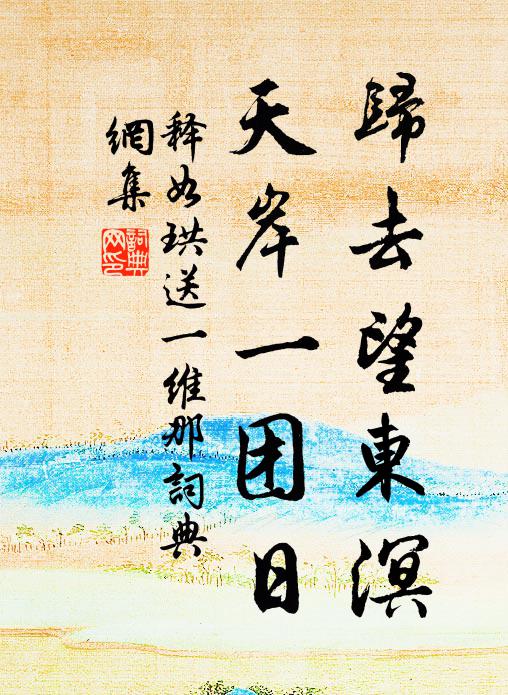 歸去望東溟
天岸一团日
释如珙送一维那詞典
網集
詞典
网印